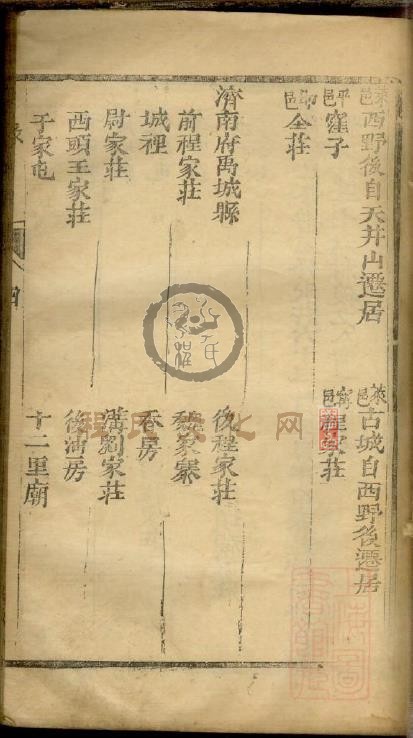 萊邑西野後自天井山遷居
萊邑古城自西野後遷居
平邑窪子
寧邑程家莊
即邑全莊
濟南府禹城縣
後程家莊
前程家莊
魏家寨
城裡
香房
尉家莊
溝劉家莊
西頭王家莊
後油房
于家屯
十二里廟
程氏文化网